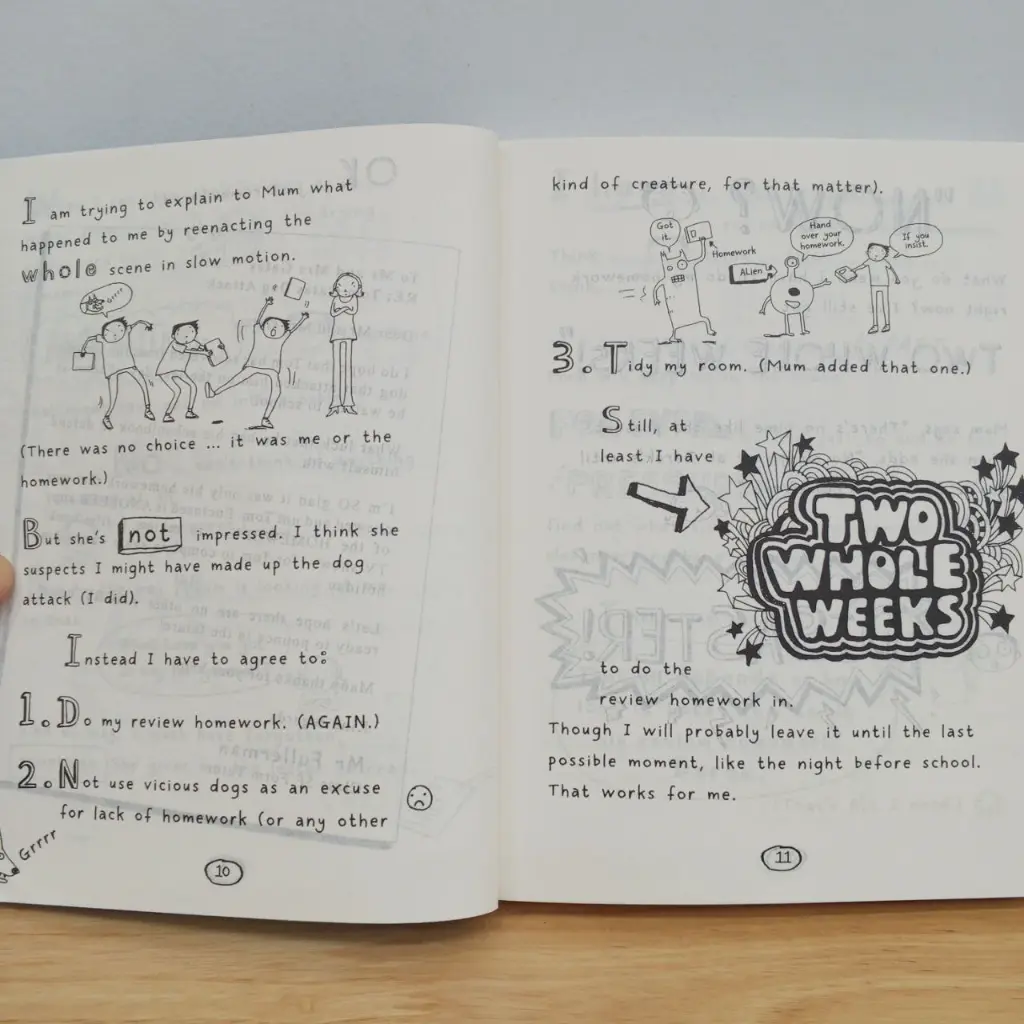 I am trying to explain to Mum what
happened to me by reenacting the
whole scene in slow motion.
Grrrr
(There was no choice ... it was me or the
homework.)
But she's not impressed. I think she
suspects I might have made up the dog
attack (I did).
Instead I have to agree to:
1. Do my review homework. (AGAIN.)
2. Not use vicious dogs as an excuse
for lack of homework (or any other
Grrrr
10
kind of creature, for that matter).
Got it.
Homework
ALien
Hand
over your
homework.
If you
insist.
3. Tidy my room. (Mum added that one.)
Still, at
least I have
TWO
WHOLE
WEEKS
to do the
review homework in.
Though I will probably leave it until the last
possible moment, like the night before school.
That works for me.
11